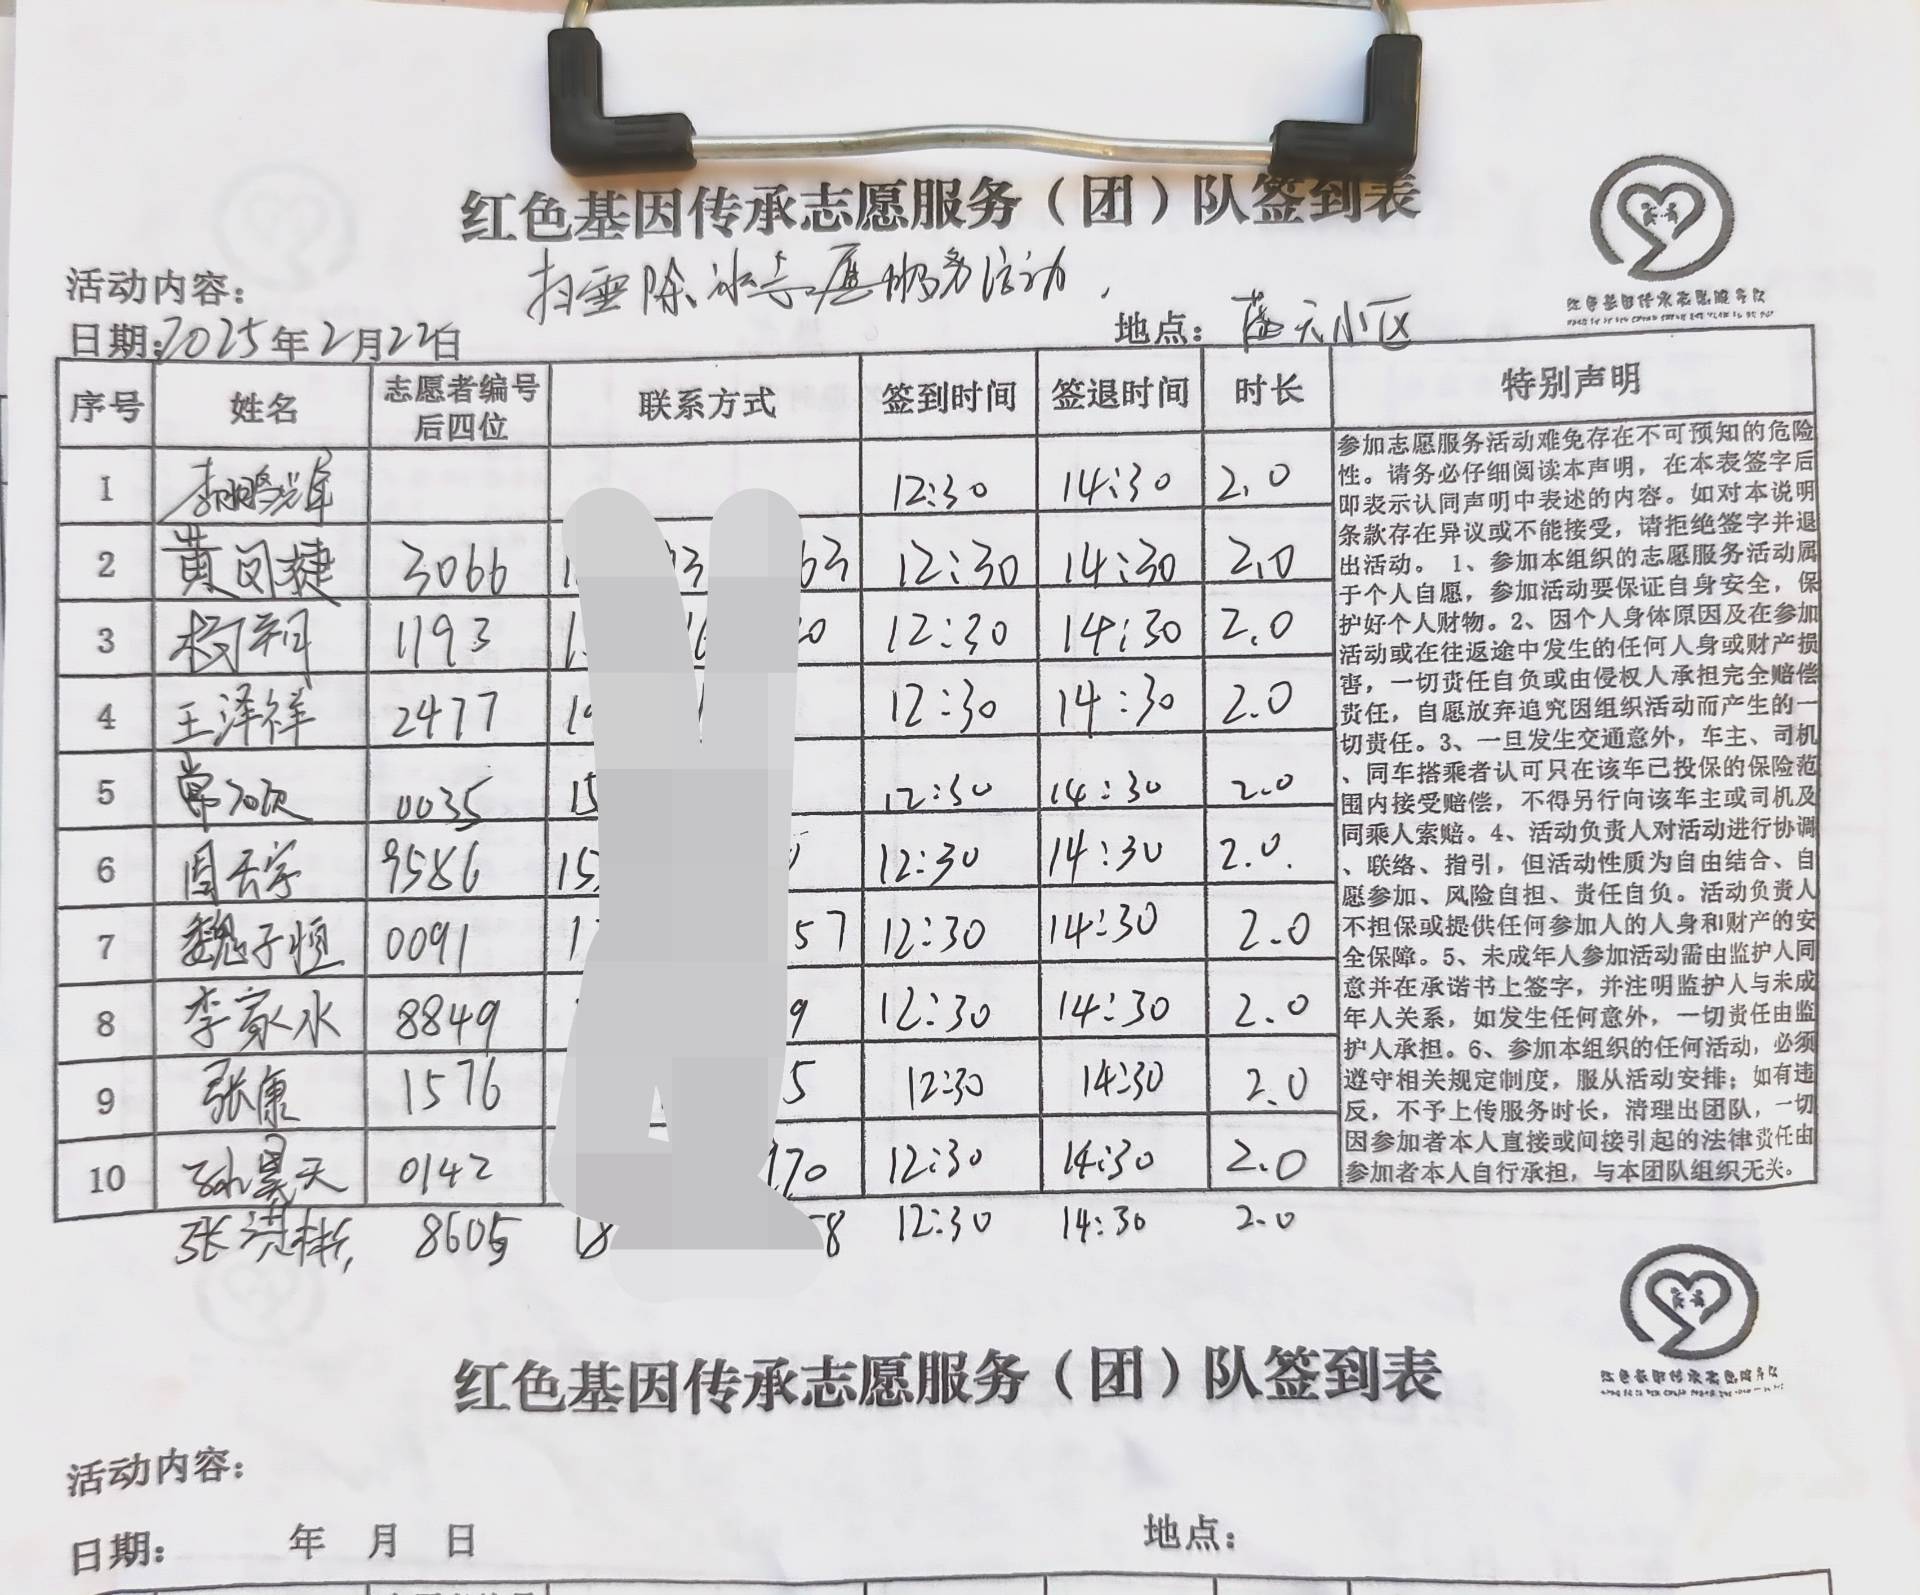 红色基因传承志愿服务（团）队签到表
活动内容： 扫雪除冰志愿服务活动
日期：2025年2月22日 地点： 元小区
序号 姓名 志愿者编号后四位 联系方式 签到时间 签退时间 时长 特别声明
1 李鹏辉 12:30 14:30 2.0
2 黄闵捷 3066 63 12:30 14:30 2.0
3 杨翔 1193 12:30 14:30 2.0
4 王泽祥 2477 12:30 14:30 2.0
5 0035 15 12:30 14:30 2.0
6 周天宇 9586 15 12:30 14:30 2.0.
7 魏子恒 0091 57 12:30 14:30 2.0
8 李家水 8849 9 12:30 14:30 2.0
9 张康 1576 5 12:30 14:30 2.0
10 孙昊天 0142 170 12:30 14:30 2.0
张洪彬 8605 18 8 12:30 14:30 2.0
参加志愿服务活动难免存在不可预知的危险
性。请务必仔细阅读本声明，在本表签字后
即表示认同声明中表述的内容。如对本说明
条款存在异议或不能接受，请拒绝签字并退
出活动。 1、参加本组织的志愿服务活动属
于个人自愿，参加活动要保证自身安全，保
护好个人财物。2、因个人身体原因及在参加
活动或在往返途中发生的任何人身或财产损
害，一切责任自负或由侵权人承担完全赔偿
责任，自愿放弃追究因组织活动而产生的一
切责任。3、一旦发生交通意外，车主、司机
、同车搭乘者认可只在该车已投保的保险范
围内接受赔偿，不得另行向该车主或司机及
同乘人索赔。4、活动负责人对活动进行协调
、联络、指引，但活动性质为自由结合、自
愿参加、风险自担、责任自负。活动负责人
不担保或提供任何参加人的人身和财产的安
全保障。5、未成年人参加活动需由监护人同
意并在承诺书上签字，并注明监护人与未成
年人关系，如发生任何意外，一切责任由监
护人承担。6、参加本组织的任何活动，必须
遵守相关规定制度，服从活动安排；如有违
反，不予上传服务时长，清理出团队，一切
因参加者本人直接或间接引起的法律责任由
参加者本人自行承担，与本团队组织无关。
红色基因传承志愿服务（团）队签到表
活动内容：
日期： 年 月 日 地点：